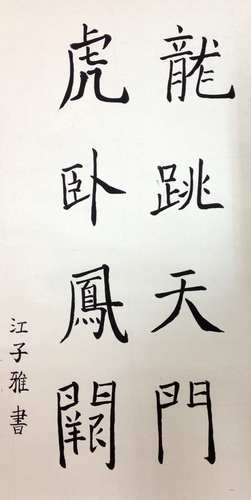 龍跳天門
虎卧鳳闕
江子雅書